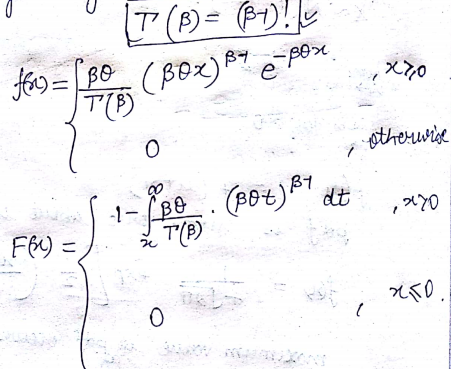 Γ(β) = (β-1)!
f(x) = { βθ/Γ(β) (βθx)^(β-1) e^(-βθx) , x≥0
0 , otherwise
F(x) = { 1 - ∫_x^∞ βθ/Γ(β) . (βθt)^(β-1) dt , x>0
0 , x≤0.